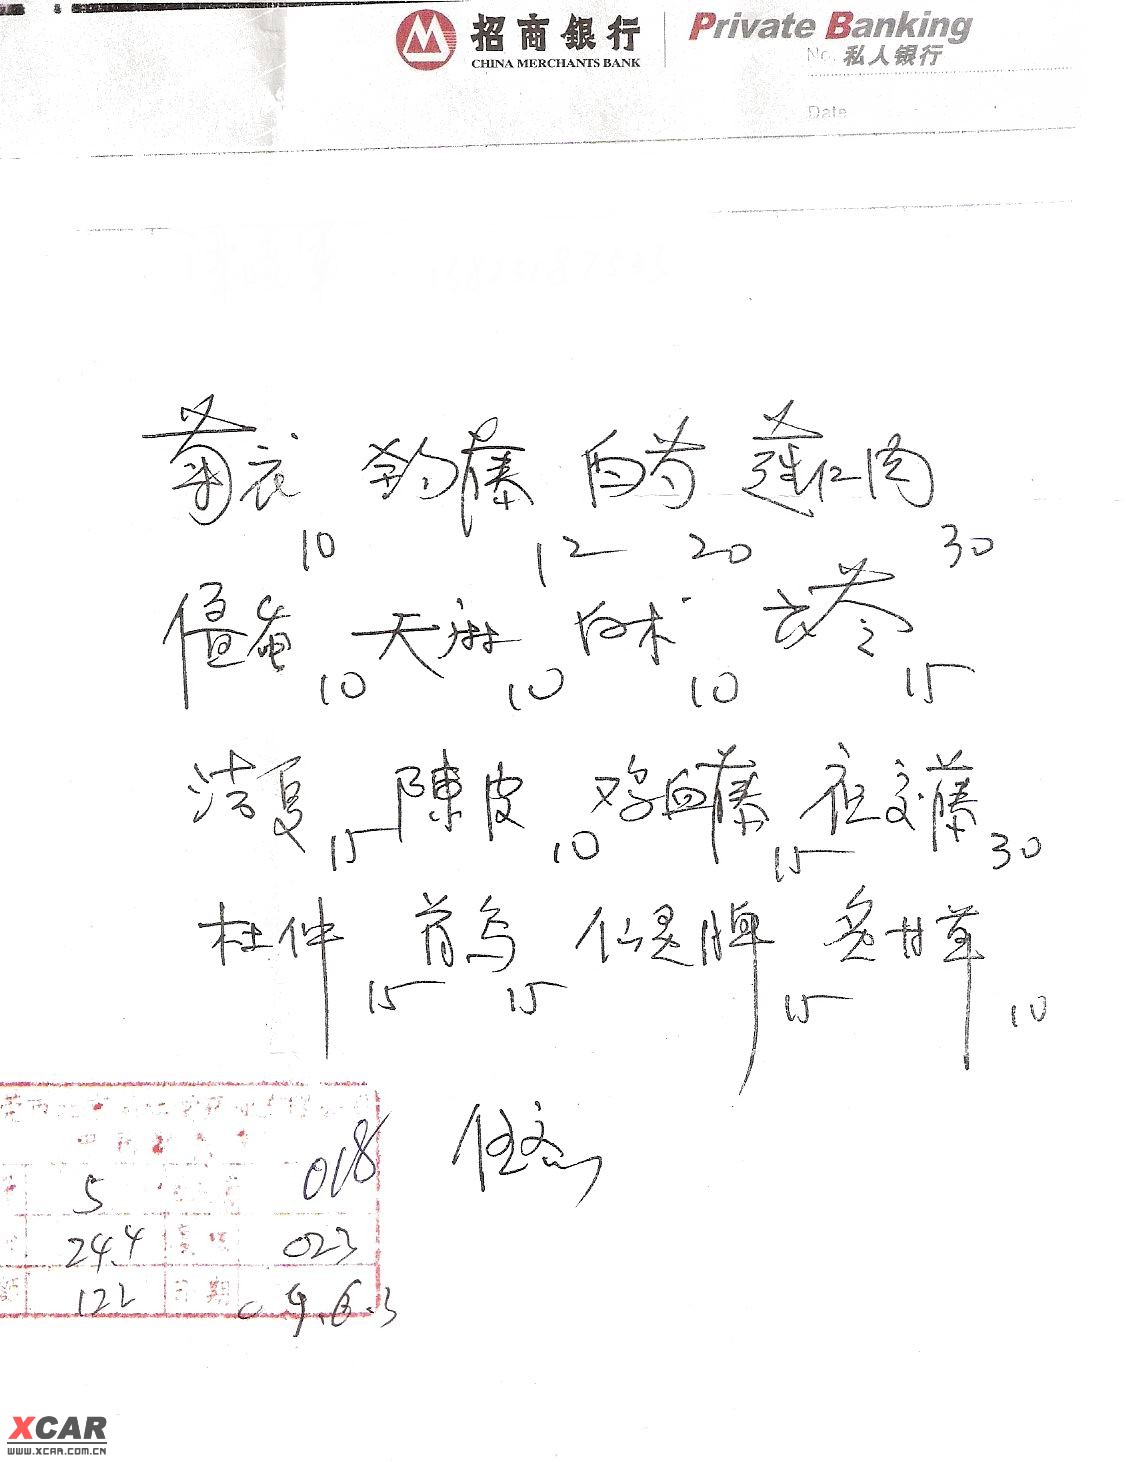 招商銀行 Private Banking
CHINA MERCHANTS BANK No. 私人银行
Date
菊衣 钩藤 白芍 莲仁肉
10 12 20 30
僵蚕 天麻 白术 茯苓
10 10 10 15
法夏 陳皮 鸡血藤 夜交藤
15 10 15 30
杜仲 首乌 仙灵脾 炙甘草
15 15 15 10
018
5
24.4 023
122 09.6.3
XCAR
WWW.XCAR.COM.CN